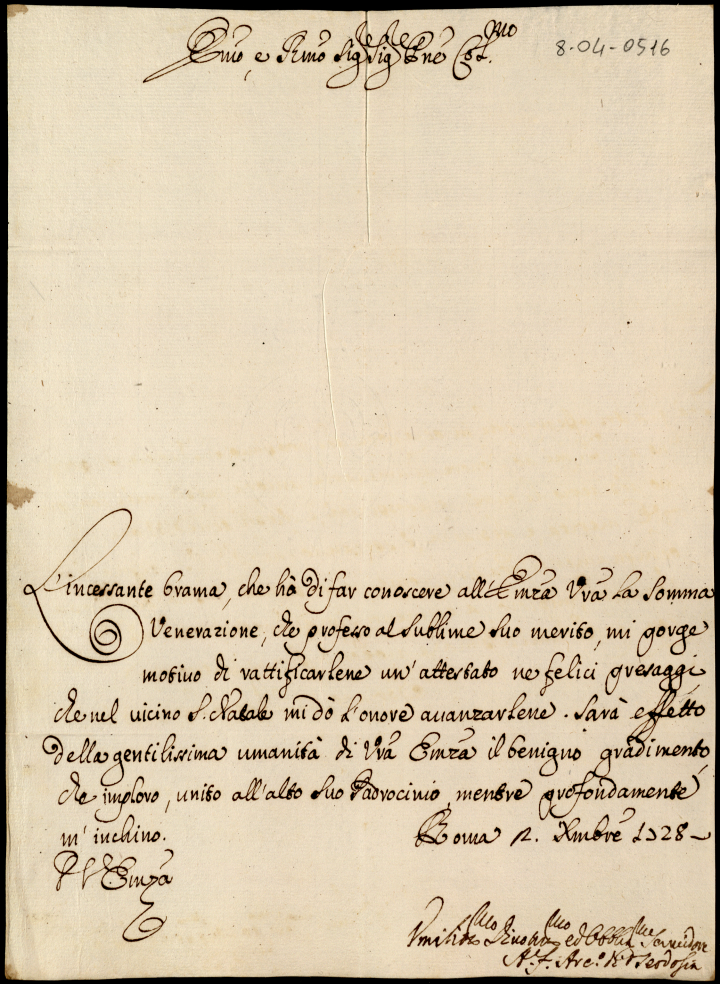 Emo, e Rmo Sig.re Sig.re Pne Col.mo
8-04-0516
L'incessante brama, che hò di far conoscere all'Emza Vra La Somma
Venerazione, che professo al Sublime Suo merito, mi porge
motivo di rattificarlene un' attestato ne felici presaggi
che nel vicino S. Natale mi dò l'onore avanzarlene. Sarà effetto
della gentilissima umanità di Vra Emza il benigno gradimento,
che imploro, unito all'alto Suo Padrocinio, mentre profondamente
m' inchino. Roma 12. Xmbre 1728
Emza
Umiliss.mo Servidore
A. F. Arc.o di Teodosia